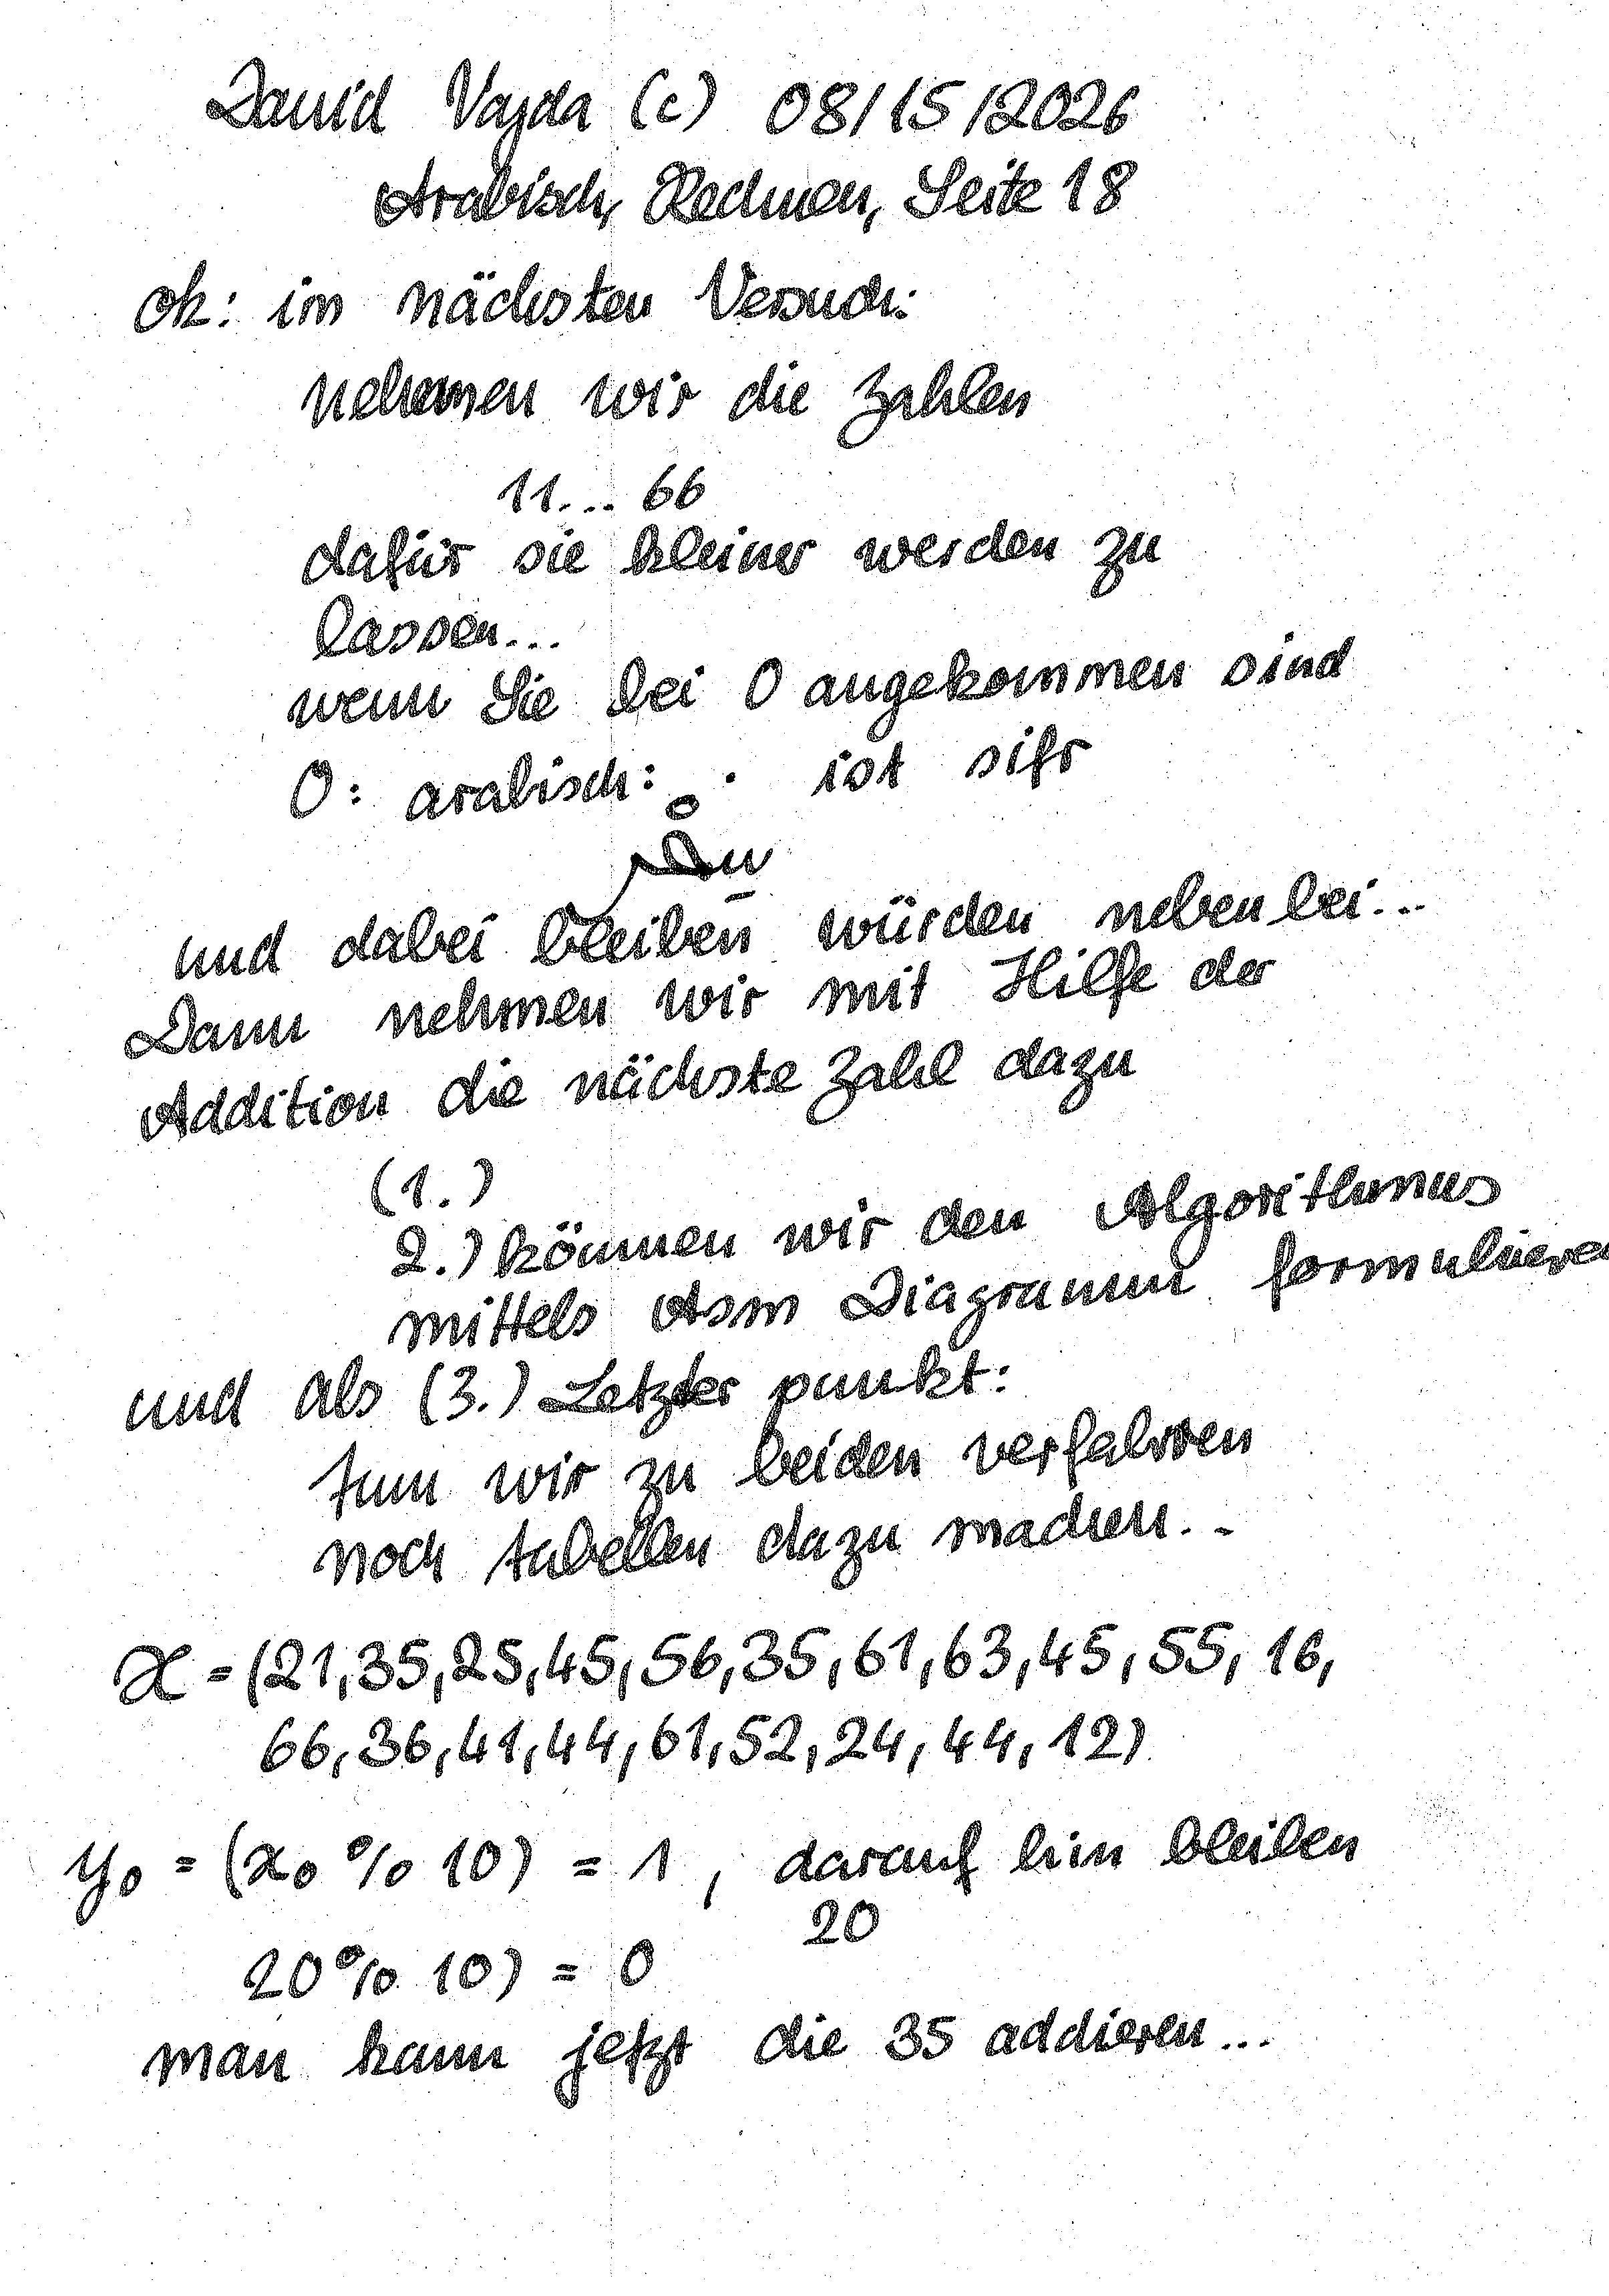 David Vajda (c) 08/15/2026
Arabisch, Rechnen, Seite 18
ok: im nächsten Versuch:
nehmen wir die Zahlen
11... 66
dafür sie kleiner werden zu
lassen...
wenn Sie bei 0 angekommen sind
0: arabisch: · ist sifr
صفر
und dabei bleiben würden nebenbei...
Dann nehmen wir mit Hilfe der
Addition die nächste Zahl dazu
(1.)
2.) können wir den Algorithmus
mittels Asm Diagramm formulieren
und als (3.) Letzter punkt:
tun wir zu beiden verfahren
noch tabellen dazu machen..
x = (21,35,25,45,56,35,61,63,45,55,16,
66,36,41,44,61,52,24,44,12)
y₀ = (x₀ % 10) = 1, darauf hin bleiben
20
20 % 10) = 0
man kann jetzt die 35 addieren...